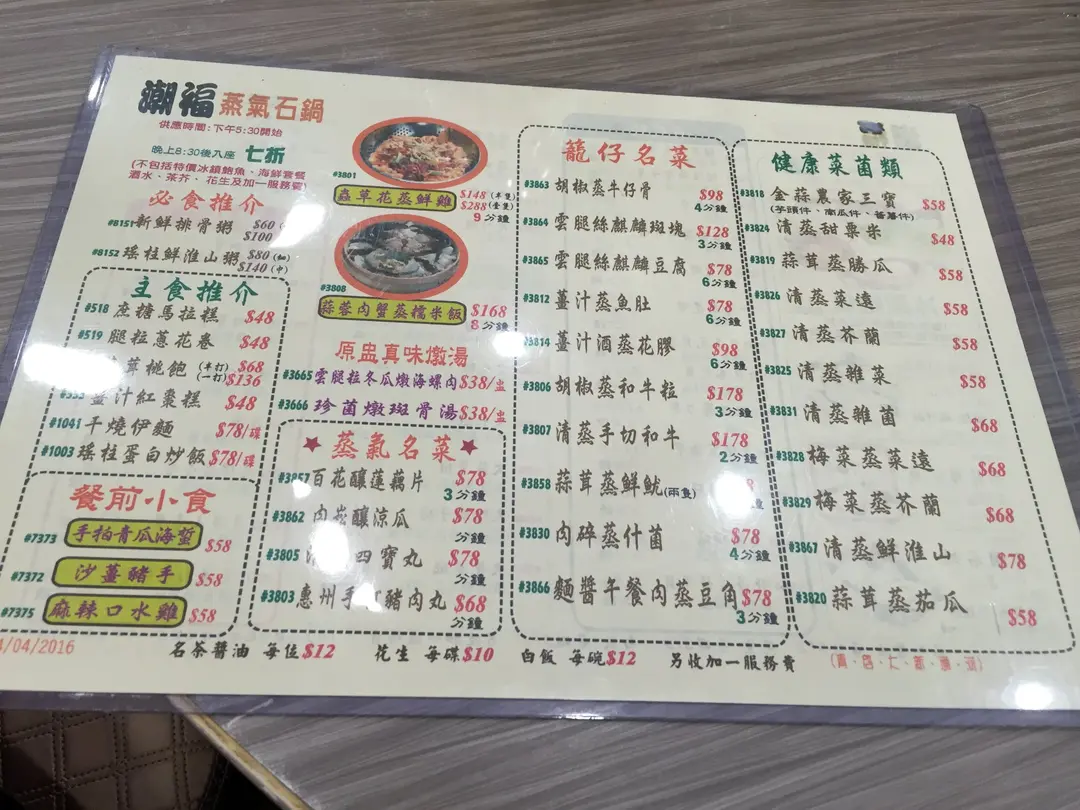 潮福蒸氣石鍋
供應時間:下午5:30開始
晚上8:30後入座 七折
(不包括特價冰鎮鮑魚、海鮮套餐
酒水、茶芥、花生及加一服務費)
必食推介
#8151新鮮排骨粥 $60
$100
#8152瑤柱鮮淮山粥 $80(細)
$140(中)
主食推介
#518 蔗糖馬拉糕 $48
#519 腿粒蔥花卷 $48
茸桃飽 (半打) $68
(一打) $136
薑汁紅棗糕 $48
#1041干燒伊麵 $78/碟
#1003瑤柱蛋白炒飯$78/碟
餐前小食
#7373 手拍青瓜海蜇 $58
#7372 沙薑豬手 $58
#7375 麻辣口水雞 $58
#3801
蟲草花蒸鮮雞 $148(半隻)
$288(壹隻)
9分鐘
#3808
蒜蓉肉蟹蒸糯米飯 $168
8分鐘
原盅真味燉湯
#3665雲腿粒冬瓜燉海螺肉$38/盅
#3666 珍菌燉斑骨湯$38/盅
蒸氣名菜
#3857百花釀蓮藕片 $78
3分鐘
#3862 肉崧釀涼瓜 $78
分鐘
#3805 四寶丸 $78
分鐘
#3803 惠州手 豬肉丸 $68
分鐘
籠仔名菜
#3863 胡椒蒸牛仔骨 $98
4分鐘
#3864 雲腿絲麒麟斑塊 $128
3分鐘
#3865 雲腿絲麒麟豆腐 $78
6分鐘
#3812 薑汁蒸魚肚 $78
6分鐘
#3814 薑汁酒蒸花膠 $98
6分鐘
#3806 胡椒蒸和牛粒 $178
3分鐘
#3807 清蒸手切和牛 $178
2分鐘
#3858 蒜茸蒸鮮魷(兩隻)
分鐘
#3830 肉碎蒸什菌 $78
4分鐘
#3866 麵醬午餐肉蒸豆角$78
3分鐘
健康菜菌類
#3818 金蒜農家三寶 $58
(芋頭件、南瓜件、番薯件)
#3824 清蒸甜粟米 $48
#3819 蒜茸蒸勝瓜 $58
#3826 清蒸菜遠 $58
#3827 清蒸芥蘭 $58
#3825 清蒸雜菜 $58
#3831 清蒸雜菌 $68
#3828 梅菜蒸菜遠 $68
#3829 梅菜蒸芥蘭 $68
#3867 清蒸鮮淮山 $78
#3820 蒜茸蒸茄瓜 $58
/04/2016
名茶醬油 每位$12 花生 每碟$10 白飯 每碗$12 另收加一服務費